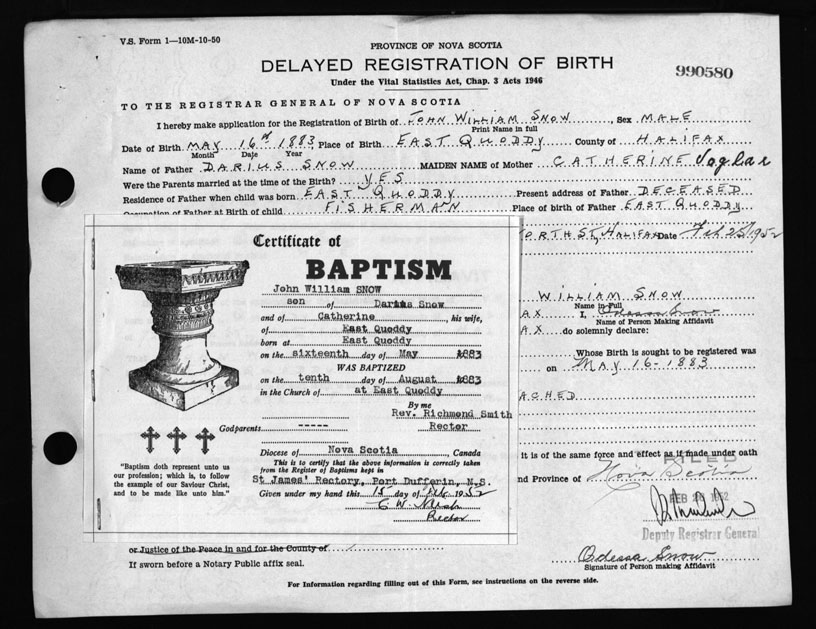 V.S. Form 1—10M-10-50
PROVINCE OF NOVA SCOTIA
DELAYED REGISTRATION OF BIRTH
990580
Under the Vital Statistics Act, Chap. 3 Acts 1946
TO THE REGISTRAR GENERAL OF NOVA SCOTIA
I hereby make application for the Registration of Birth of JOHN WILLIAM SNOW, Sex MALE
Print Name in full
Date of Birth MAY 16th 1883 Place of Birth EAST QUODDY County of HALIFAX
Month Date Year
Name of Father DARIUS SNOW MAIDEN NAME of Mother CATHERINE
Were the Parents married at the time of the Birth? YES
Residence of Father when child was born EAST QUODDY Present address of Father DECEASED
Occupation of Father at Birth of child FISHERMAN Place of birth of Father EAST QUODDY
ORTH ST, HALIFAX Date Feb 25/1952
WILLIAM SNOW
Name in Full
AX I, Odessa Snow
Name of Person Making Affidavit
AX do solemnly declare:
Whose Birth is sought to be registered was
on MAY 16-1883
ACHED
It is of the same force and effect as if made under oath
and Province of Nova Scotia
FILED
FEB 1952
Deputy Registrar General
Certificate of
BAPTISM
John William SNOW
son of Darius Snow
and of Catherine, his wife,
of East Quoddy
born at East Quoddy
on the sixteenth day of May 1883
WAS BAPTIZED
on the tenth day of August 1883
in the Church of at East Quoddy
By me
Rev. Richmond Smith
Godparents ----- Rector
Diocese of Nova Scotia, Canada
This is to certify that the above information is correctly taken
from the Register of Baptisms kept in
St James' Rectory, Port Dufferin, N.S.
Given under my hand this 15 day of Feb 1952
Rector
"Baptism doth represent unto us
our profession; which is, to follow
the example of our Saviour Christ,
and to be made like unto him."
or Justice of the Peace in and for the County of
If sworn before a Notary Public affix seal.
Odessa Snow
Signature of Person making Affidavit
For Information regarding filling out of this Form, see instructions on the reverse side.